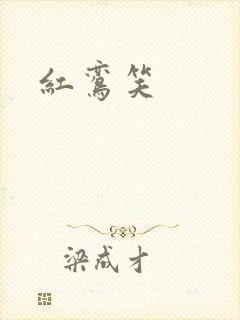 紅鸞笑
梁成才